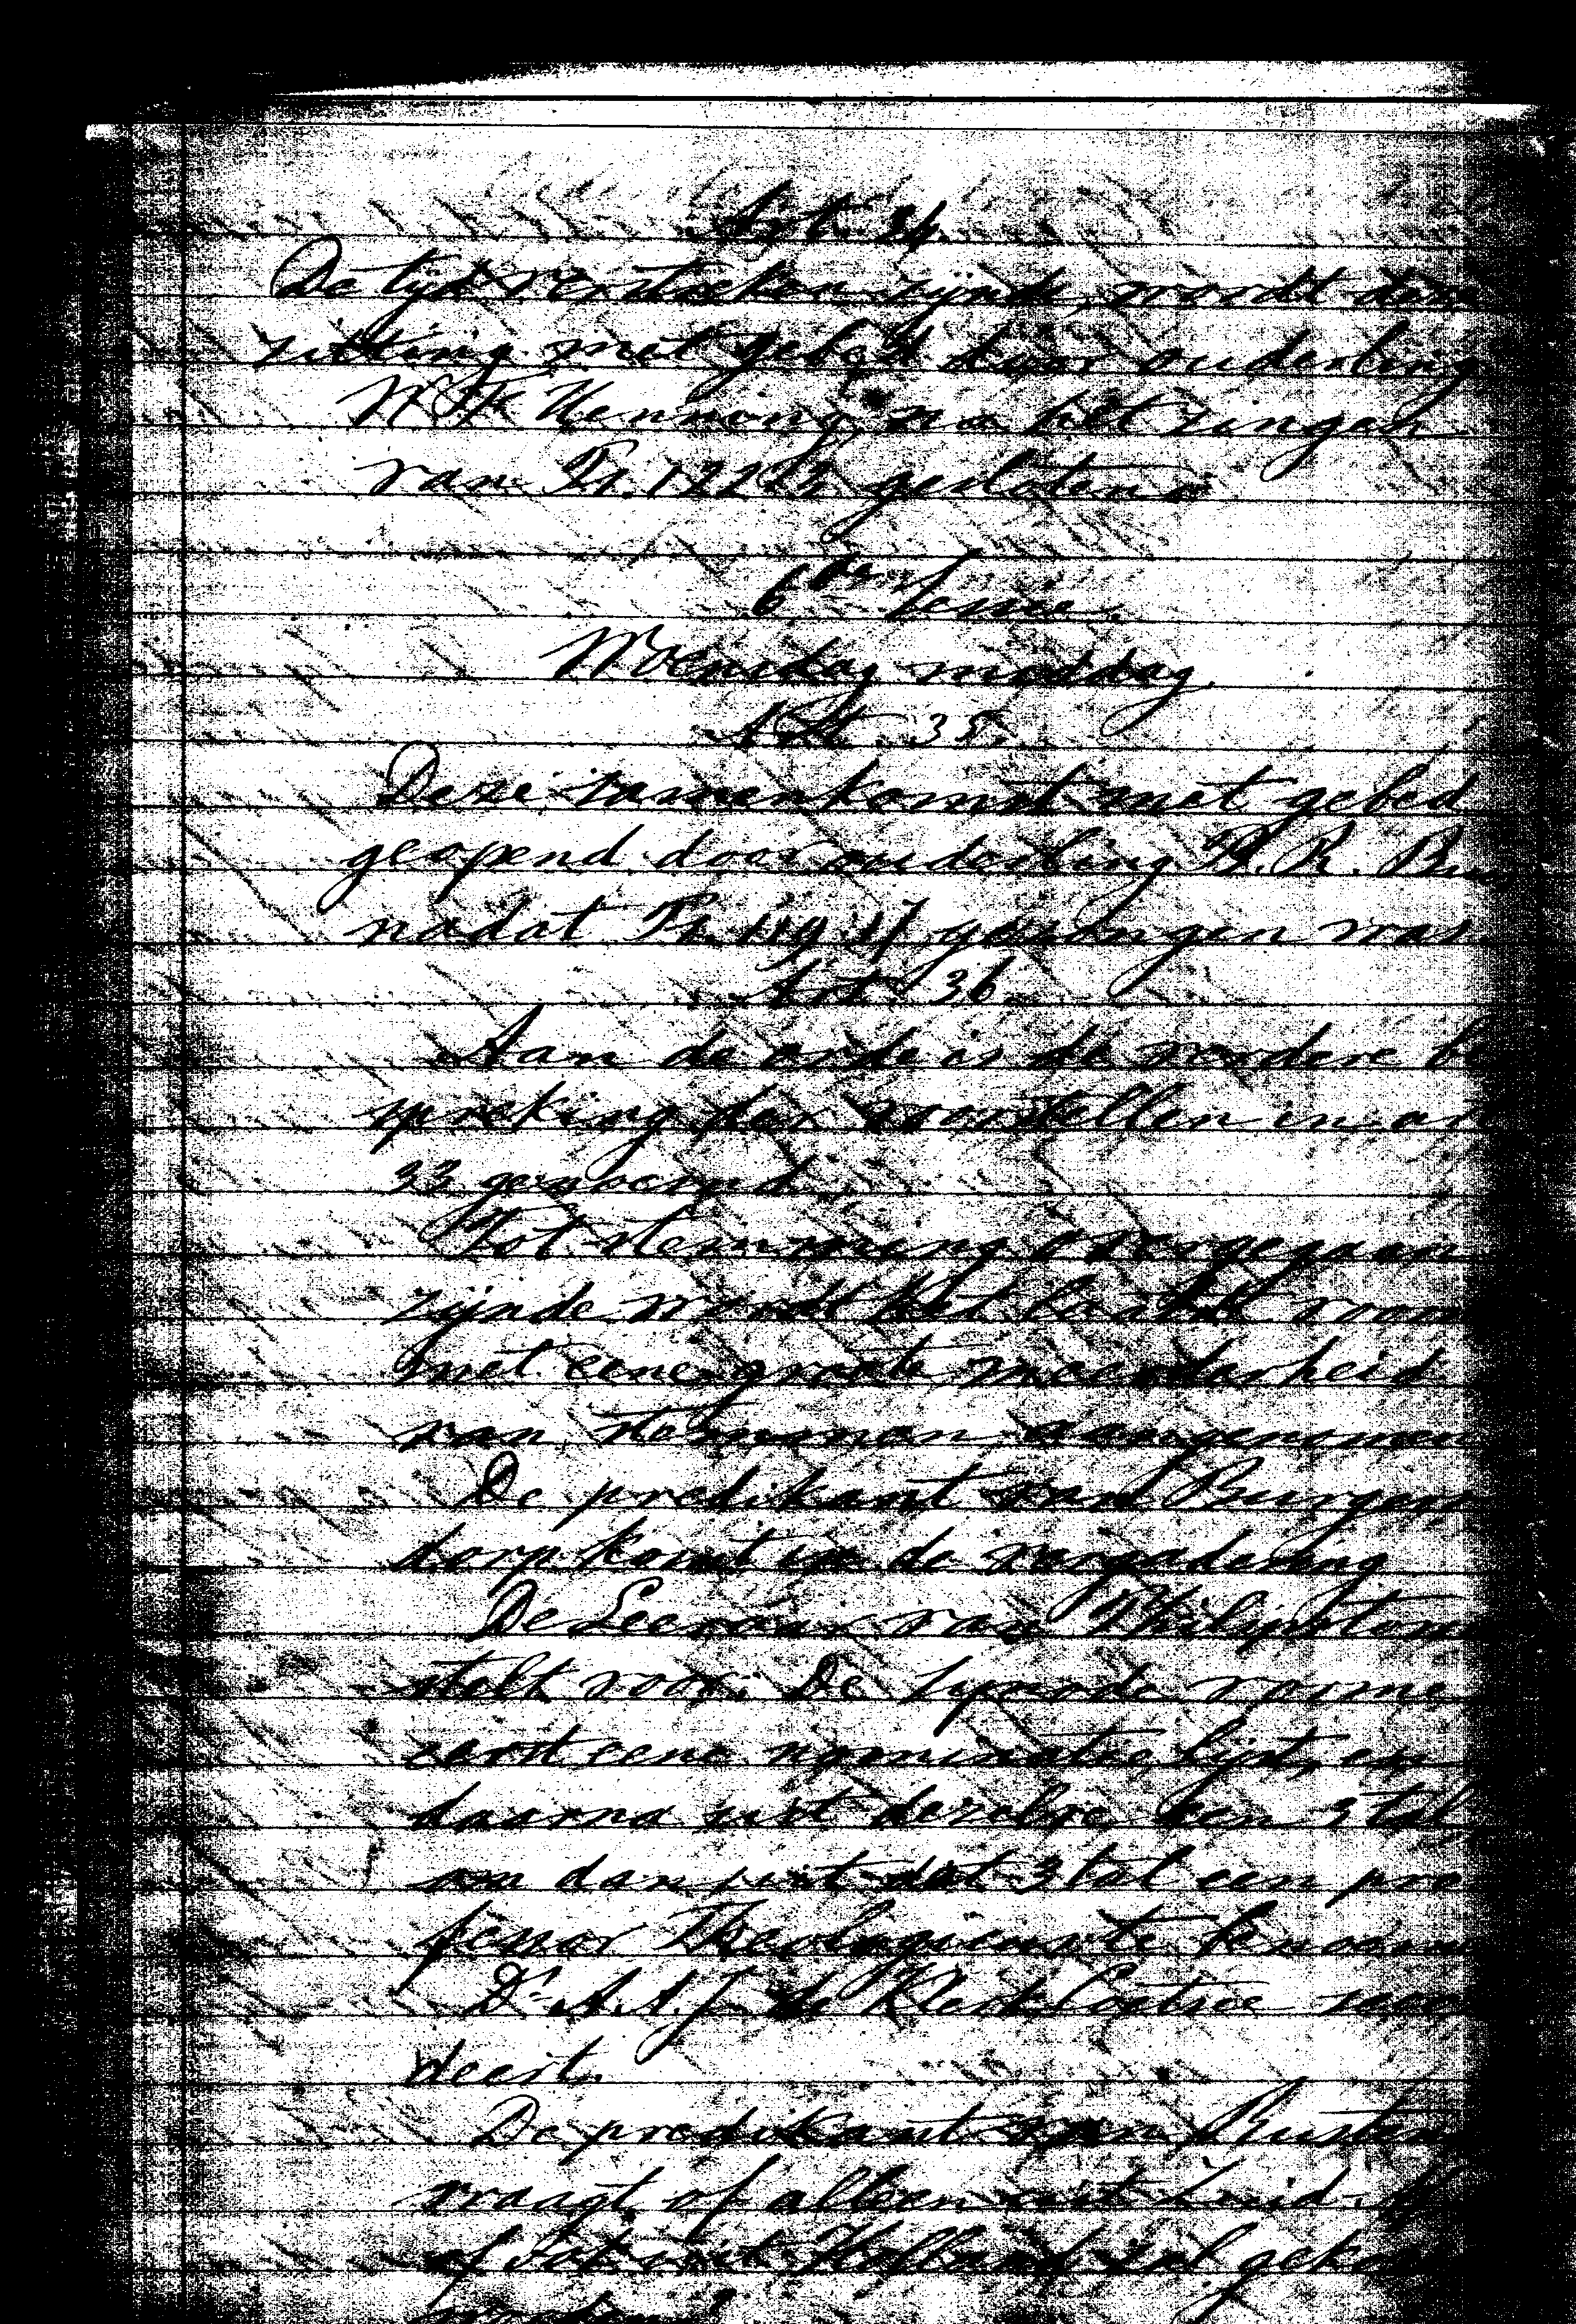 Art. 34.
De tijd verstreken zijnde, wordt deze
zitting met gebed door ouderling
na het zingen
van Ps. gesloten
6de Sessie.
Woensdag middag.
Art. 35.
Deze samenkomst met gebed
geopend door ouderling
nadat Ps. 119:17 gezongen was.
Art. 36.
Aan de orde is de verdere be
spreking der voorstellen in art
33 genoemd.
Tot stemming overgegaan
zijnde wordt het laatste voor
met eene groote meerderheid
van stemmen aangenomen
De predikant van Burgers
dorp komt in de vergadering
De Leeraar van Philipstown
stelt voor: De Synode vorme
eerst eene nominatie lijst, en
daarna uit dezelve een 3 tal,
om dan uit dat 3 tal een pro
fessor Theologicus te benoemen
Ds. A. A. J. de Klerk Coetsee secon
deert.
De predikant van Rustenb
vraagt of alleen uit Zuid. Af
of ook uit Holland zal geko
worden?